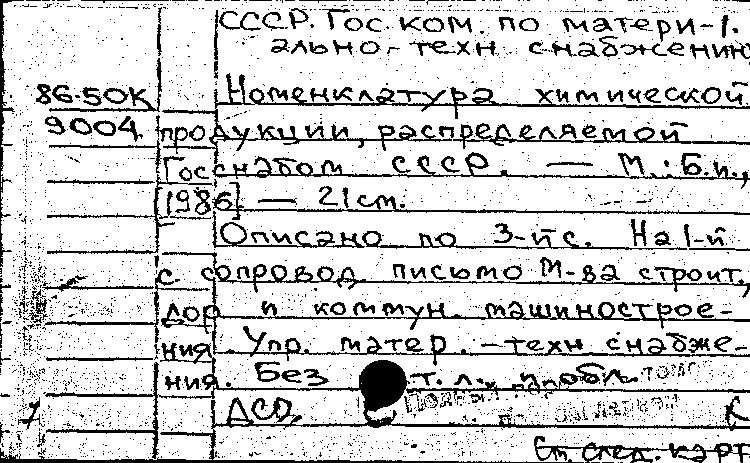 СССР. Гос. ком. по матери-1.
ально-техн снабжению
86-50К Номенклатура химической
9004 продукции, распределяемой
Госснабом СССР. — М.: Б.и.,
[1986] — 21 см.
Описано по 3-й с. На 1-й
с сопровод. письмо М-ва строит,
дор и коммун. машинострое-
ния. Упр. матер. -техн снабже-
ния. Без т. л.
1 ДСП,
См. след. карт